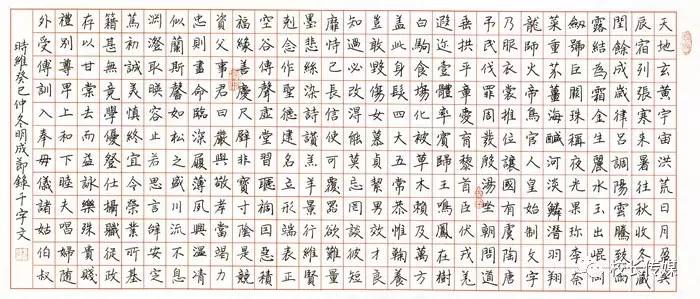 天地玄黃宇宙洪荒日月盈昃
辰宿列張寒來暑往秋收冬藏
閏餘成歲律呂調陽雲騰致雨
露結為霜金生麗水玉出崑岡
劍號巨闕珠稱夜光果珍李柰
菜重芥薑海鹹河淡鱗潛羽翔
龍師火帝鳥官人皇始制文字
乃服衣裳推位讓國有虞陶唐
弔民伐罪周發殷湯坐朝問道
垂拱平章愛育黎首臣伏戎羌
遐邇壹體率賓歸王鳴鳳在樹
白駒食場化被草木賴及萬方
蓋此身髮四大五常恭惟鞠養
豈敢毀傷女慕貞絜男效才良
知過必改得能莫忘罔談彼短
靡恃己長信使可覆器欲難量
墨悲絲染詩讚羔羊景行維賢
剋念作聖德建名立形端表正
空谷傳聲虛堂習聽禍因惡積
福緣善慶尺璧非寶寸陰是競
資父事君曰嚴與敬孝當竭力
忠則盡命臨深履薄夙興溫凊
似蘭斯馨如松之盛川流不息
淵澄取映容止若思言辭安定
篤初誠美慎終宜令榮業所基
籍甚無竟學優登仕攝職從政
存以甘棠去而益詠樂殊貴賤
禮別尊卑上和下睦夫唱婦隨
外受傅訓入奉母儀諸姑伯叔
時維癸巳仲冬明成節錄千字文
校长传媒